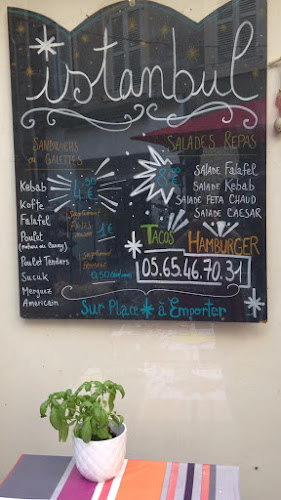 istanbul
SANDWICHS
ou GALETTES
Kebab
Kofte
Falafel
Poulet
Poulet Tenders
Sucuk
Merguez
Americain
4,50 €
Supplément
FRITES
1€
Supplément
0,50
SALADES REPAS
8
SALADE FALAFEL
SALADE KEBAB
SALADE FETA CHAUD
SALADE CAESAR
TACOS
HAMBURGER
05.65.46.70.31
Sur Place à Emporter